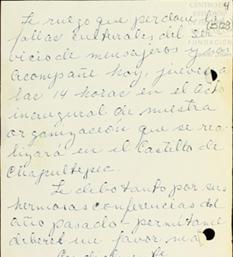 Le ruego que perdone las
fallas culturales, del Ser
vicio de mensajeros y nos
acompañe hoy, jueves a
las 14 horas en el acto
inaugural de nuestra
organización que se rea
lizará en el Castillo de
Chapultepec.
Le debo tanto por sus
hermosas conferencias del
año pasado - permítame
deberle un favor más